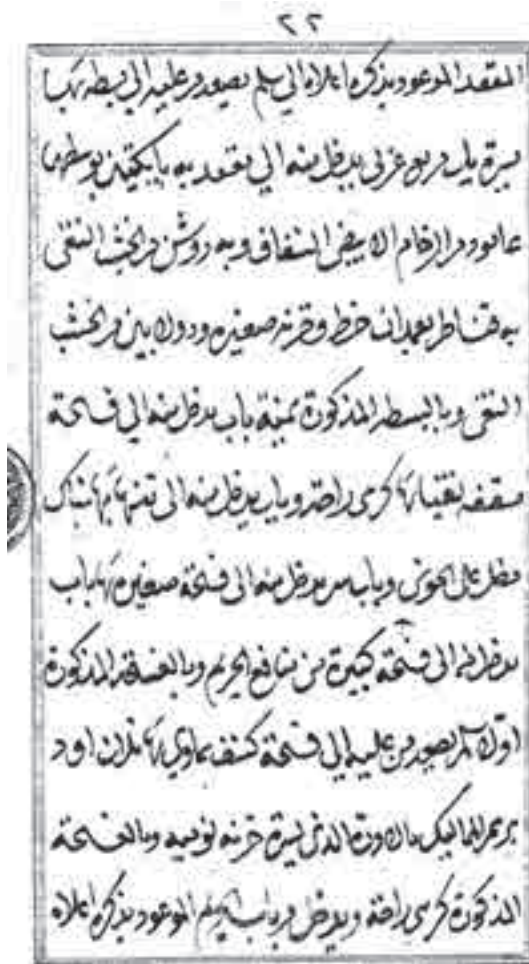 ٢٢
المقعد الموعود بذكره اعلاه الي سلم يصعد من عليه الي بسطه بها
يسرة باب مربع عربي يدخل منه الي مقعد به بايكتين بوسطهما
عامود من الرخام الابيض الشفاف وبه روشن من الخشب النقي
به قناطر بعمدان خرط وخزنه صغيره ودولابين من الخشب
النقي وبالبسطه المذكورة يمنة باب يدخل منه الي فسحة
مسقفه نقيا بها كرسي راحة وباب يدخل منه الي تنهه بها شباك
مطل علي الحوش وباب يدخل منه الي فسحة صغيره بها باب
يدخل منه الي فسحة كبيرة من منافع الحريم وبالفسحة المذكورة
اولا سلم يصعد من عليه الي فسحة كشف سماوي بها ثلاث اود
برسم المماليك بالاودة الذي يسرة خزنه نوميه وبالفسحة
المذكورة كرسي راحة ويدخل من باب الحريم الموعود بذكره اعلاه